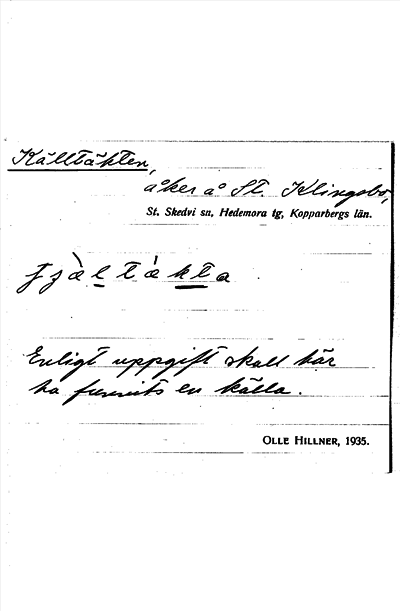 Källtäkten,
åker å St. Klingsbo,
St. Skedvi sn, Hedemora tg, Kopparbergs län.
fjä̀ltä̀kta
Enligt uppgift skall här
ha funnits en källa.
OLLE HILLNER, 1935.